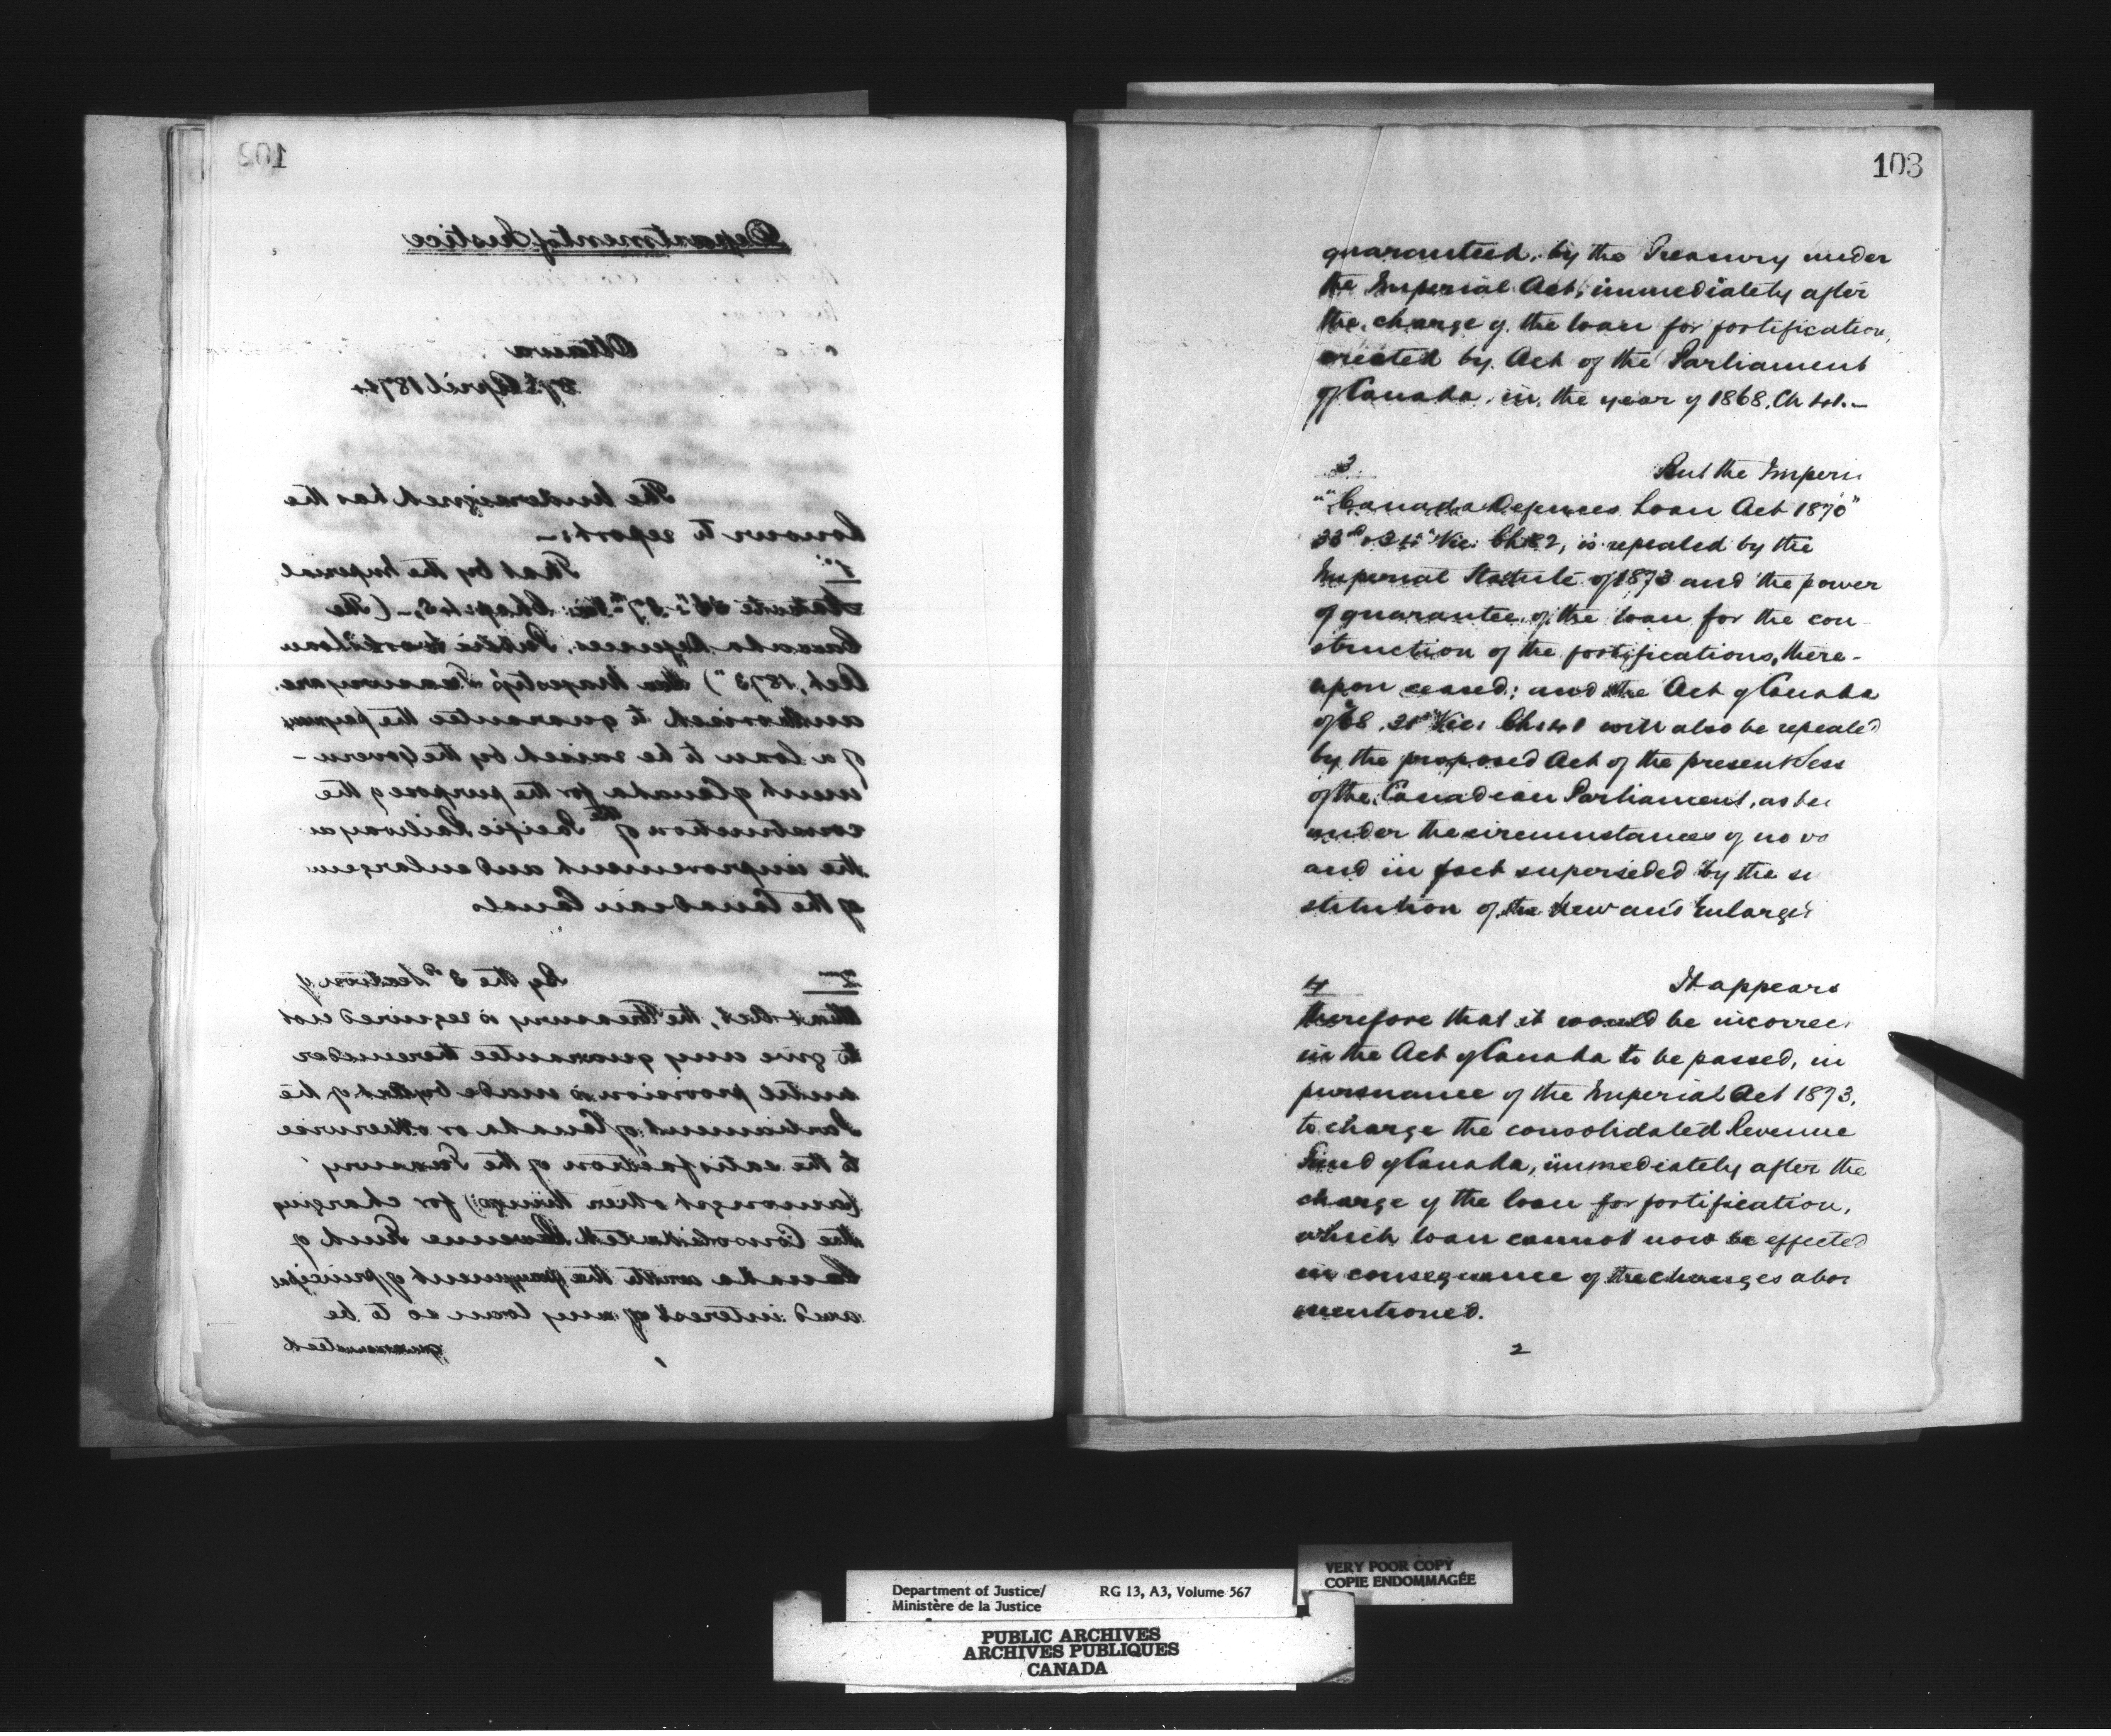 102
Department of Justice
Ottawa
27th April 1874
The Undersigned has the
honour to report:—
1st That by the Imperial
Statute 36" & 37" Vic: Chap: 45,—(The
Canada Defences, Public Works Loan
Act, 1873") Her Majesty's Treasury are
authorised to guarantee the payment
of a loan to be raised by the Govern-
ment of Canada for the purpose of the
construction of the Pacific Railway a
the improvement and enlargem
of the Canadian Canals
2nd By the 3d Section of
that Act, the Treasury is required not
to give any guarantee thereunder
until provision is made by Act of the
Parliament of Canada or otherwise
to the satisfaction of the Treasury
(amongst other things) for charging
the Consolidated Revenue Fund of
Canada with the payment of principal
and interest of any loan so to be
guaranteed
1
103
guaranteed, by the Treasury under
the Imperial Act, immediately after
the charge of the loan for fortification,
created by Act of the Parliament
of Canada, in the year of 1868, Ch 41.—
3 But the Imperi
"Canada Defences Loan Act 1870"
33d & 34" Vic: Ch 82, is repealed by the
Imperial Statute of 1873 and the power
of guarantee of the loan for the con-
struction of the fortifications, there-
upon ceased; and the Act of Canada
of 68, 31" Vic: Ch: 41 will also be repealed
by the proposed Act of the present Sess
of the Canadian Parliament, as
under the circumstances of no
and in fact superseded by the
stitution of the New and Enlarge
4 It appears
therefore that it would be incorrec
in the Act of Canada to be passed, in
pursuance of the Imperial Act 1873,
to charge the consolidated Revenue
Fund of Canada, immediately after the
charge of the loan for fortification,
which loan cannot now be effected
in consequence of the changes abov
mentioned.
2
Department of Justice/ RG 13, A3, Volume 567
Ministère de la Justice
VERY POOR COPY
COPIE ENDOMMAGÉE
PUBLIC ARCHIVES
ARCHIVES PUBLIQUES
CANADA